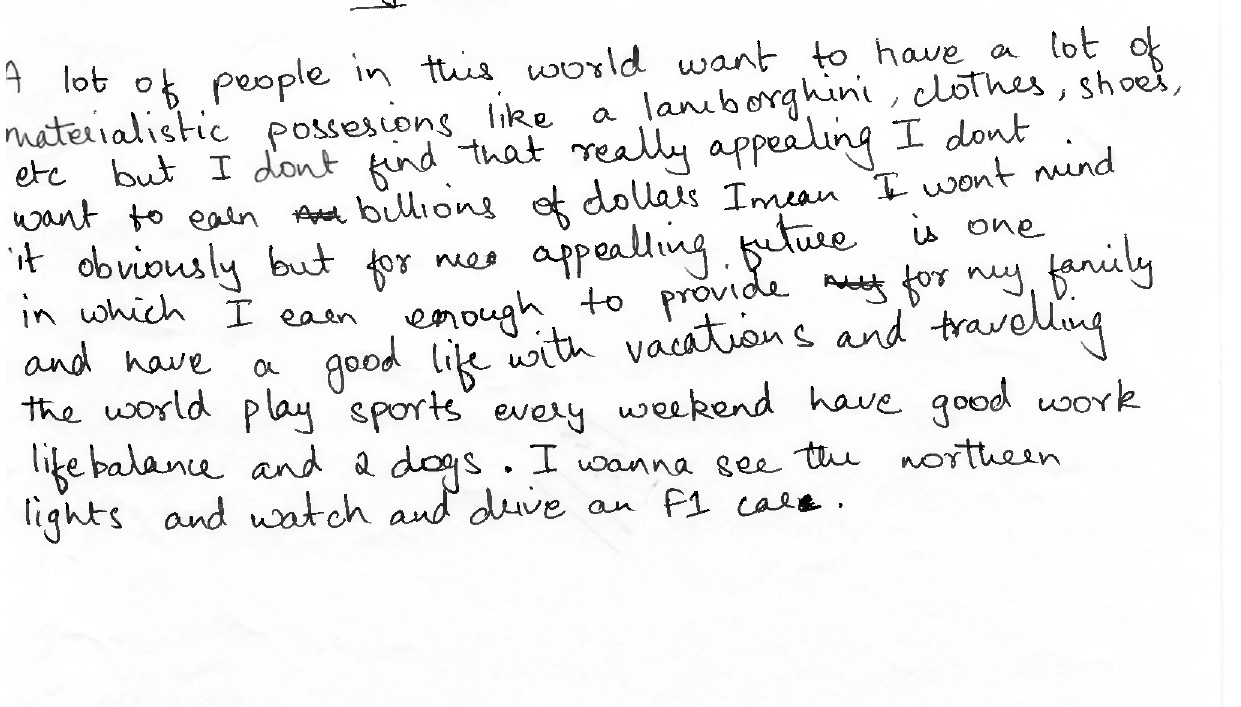 A lot of people in this world want to have a lot of
materialistic possesions like a lamborghini, clothes, shoes,
etc but I dont find that really appealing I dont
want to earn billions of dollars I mean I wont mind
it obviously but for me appealling future is one
in which I earn enough to provide for my family
and have a good life with vacations and travelling
the world play sports every weekend have good work
life balance and 2 dogs. I wanna see the northern
lights and watch and drive an F1 car.